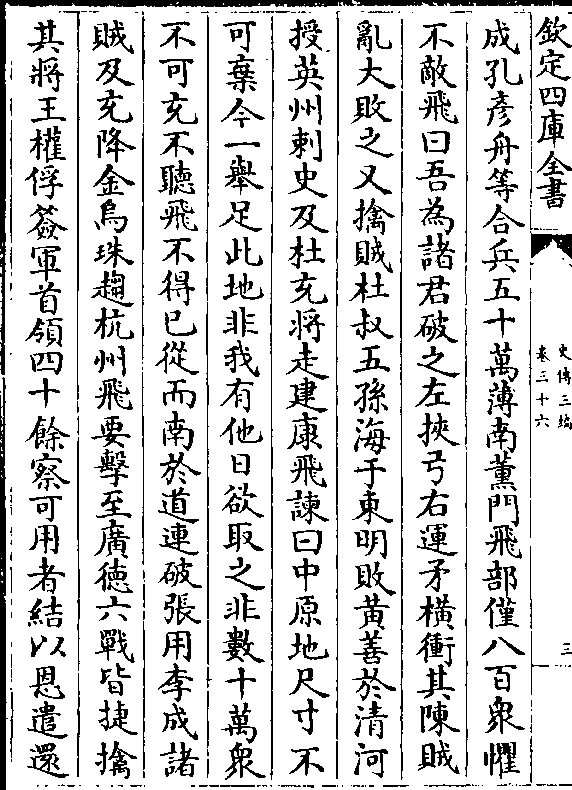 欽定四庫全書
史傳三編
卷三十六
三
成孔彥舟等合兵五十萬薄南薰門飛部僅八百衆懼
不敵飛曰吾為諸君破之左挾弓右運矛橫衝其陳賊
亂大敗之又擒賊杜叔五孫海于東明敗黃善於清河
授英州刺史及杜充將走建康飛諫曰中原地尺寸不
可棄今一舉足此地非我有他日欲取之非數十萬衆
不可充不聽飛不得已從而南於道連破張用李成諸
賊及充降金烏珠趨杭州飛要擊至廣德六戰皆捷擒
其將王權俘簽軍首領四十餘察可用者結以恩遣還